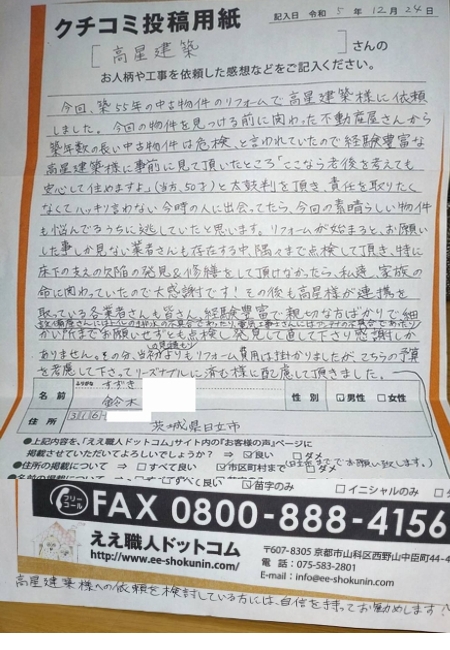 クチコミ投稿用紙
記入日 令和 5 年 12 月 24 日
[ 高星建築 ]さんの
お人柄や工事を依頼した感想などをご記入ください。
今回、築55年の中古物件のリフォームで高星建築様に依頼
しました。今回の物件を見つける前に関わった不動産屋さんから
築年数の長い中古物件は危険、と言われていたので経験豊富な
高星建築様に事前に見て頂いたところ「ここなら老後を考えても
安心して住めますよ」(当方、50才)と太鼓判を頂き、責任を取りたく
なくてハッキリ言わない今時の人に出会ってたら、今回の素晴らしい物件
も悩んでるうちに逃していたと思います。リフォームが始まると、お願い
した事しか見ない業者さんも存在する中、隅々まで点検して頂き、特に
床下の支えの欠陥の発見&修繕をして頂けなかったら、私達、家族の
命に関わっていたので大感謝です!その後も高星様が連携を
取っている各業者さんも皆さん、経験豊富で親切な方ばかりで細
設備屋さんにはトイレの排水の不具合であったり、電気工事士さんにはアンテナの不具合であったり
かい所までお願いせずとも点検し発見して直して下さり感謝しか
ありません。その分、当初の見積もりよりもリフォーム費用は掛かりましたが、こちらの予算
を考慮して下さってリーズナブルに済む様に配慮して頂けました。
ふりがな すずき
名前 鈴木 性別 ☑男性 □女性
316
住所 茨城県日立市
●上記内容を、「ええ職人ドットコム」サイト内の『お客様の声』ページに
掲載させていただいてよろしいでしょうか? ⇒ ☑良い □ダメ
●住所の掲載について ⇒ □すべて良い ☑市区町村まで □ダメ (日立市まででお願い致します。)
□すべて良い ☑苗字のみ □イニシャルのみ
フリーコール FAX 0800-888-4156
ええ職人ドットコム
http://www.ee-shokunin.com/
〒607-8305 京都市山科区西野山中臣町44-4
電話:075-583-2801
E-mail:info@ee-shokunin.com
高星建築様への依頼を検討している方には、自信を持ってお勧めします!